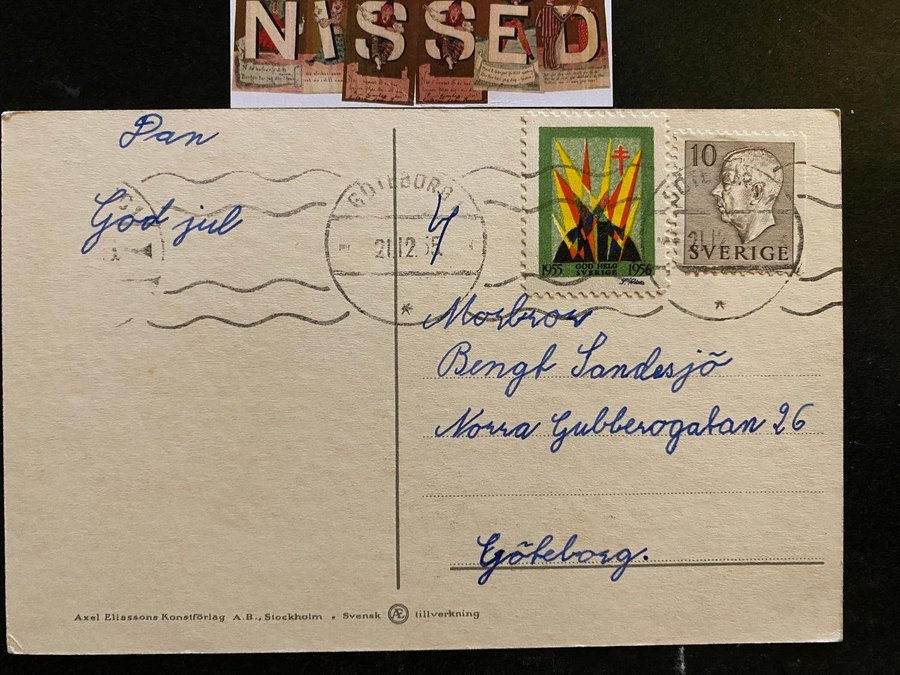 NISSED
Pan
God jul
GÖTEBORG
21.12.55
1955 GOD HELG SVERIGE 1956
10
SVERIGE
Morbror
Bengt Sandesjö
Norra Gubberogatan 26
Göteborg.
Axel Eliassons Konstförlag A.B., Stockholm • Svensk Æ tillverkning